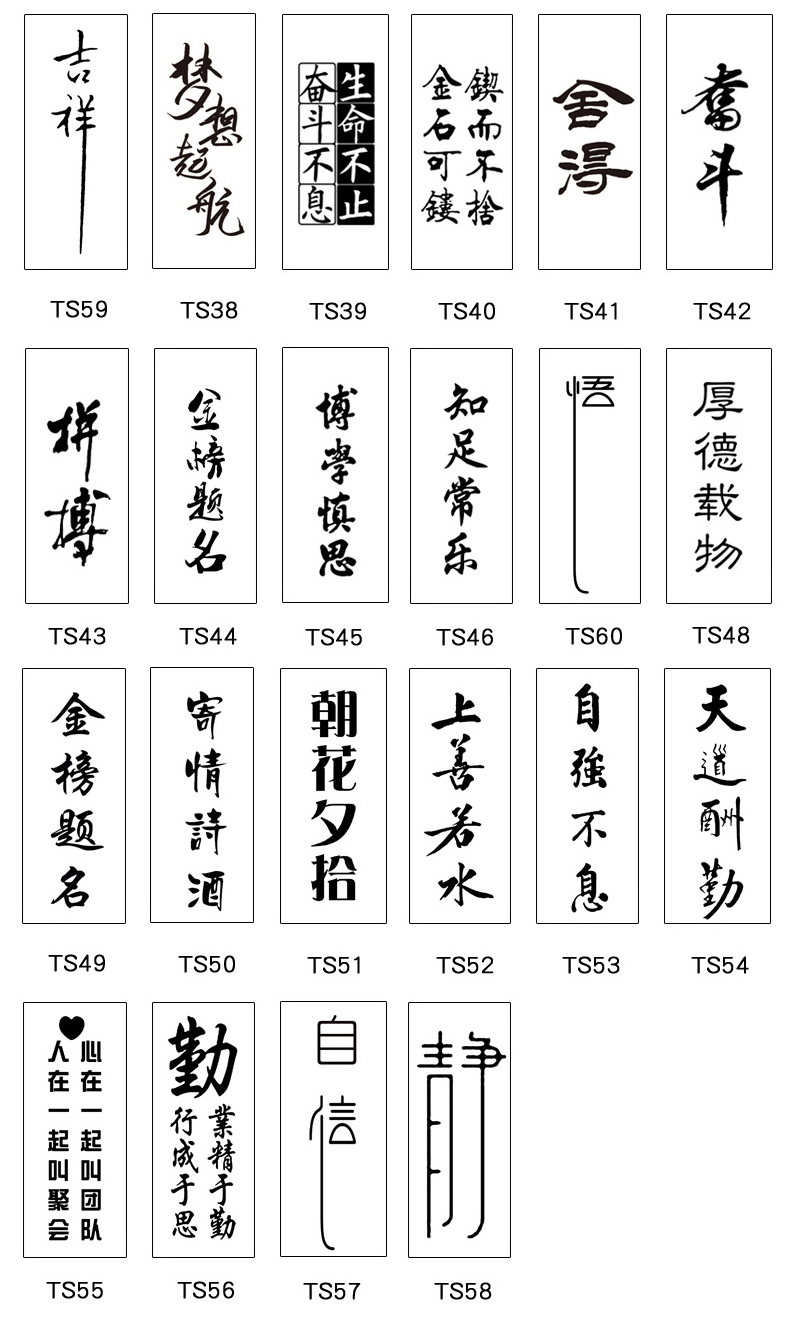 吉祥
TS59
梦想起航
TS38
生命不止
奋斗不息
TS39
鍥而不捨
金石可鏤
TS40
舍得
TS41
奮斗
TS42
拼搏
TS43
金榜题名
TS44
博學慎思
TS45
知足常乐
TS46
悟
TS60
厚德载物
TS48
金榜题名
TS49
寄情詩酒
TS50
朝花夕拾
TS51
上善若水
TS52
自強不息
TS53
天道酬勤
TS54
人在一起叫聚会
心在一起叫团队
TS55
勤
業精于勤
行成于思
TS56
自信
TS57
静
TS58